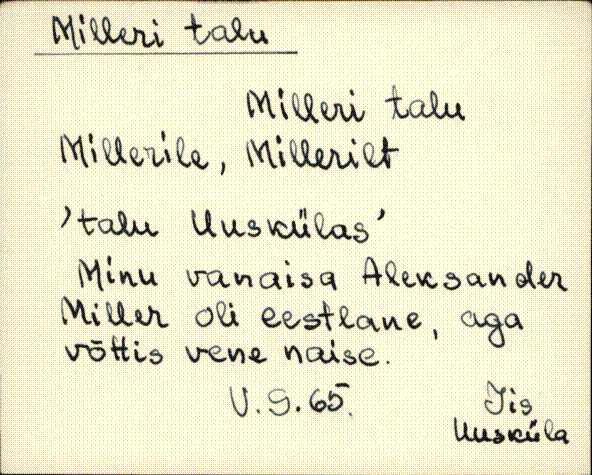 Milleri talu
Milleri talu
Millerile, Millerilt
'talu Uuskülas'
Minu vanaisa Aleksander
Miller oli eestlane, aga
võttis vene naise.
V. S. 65.
Jis
Uusküla